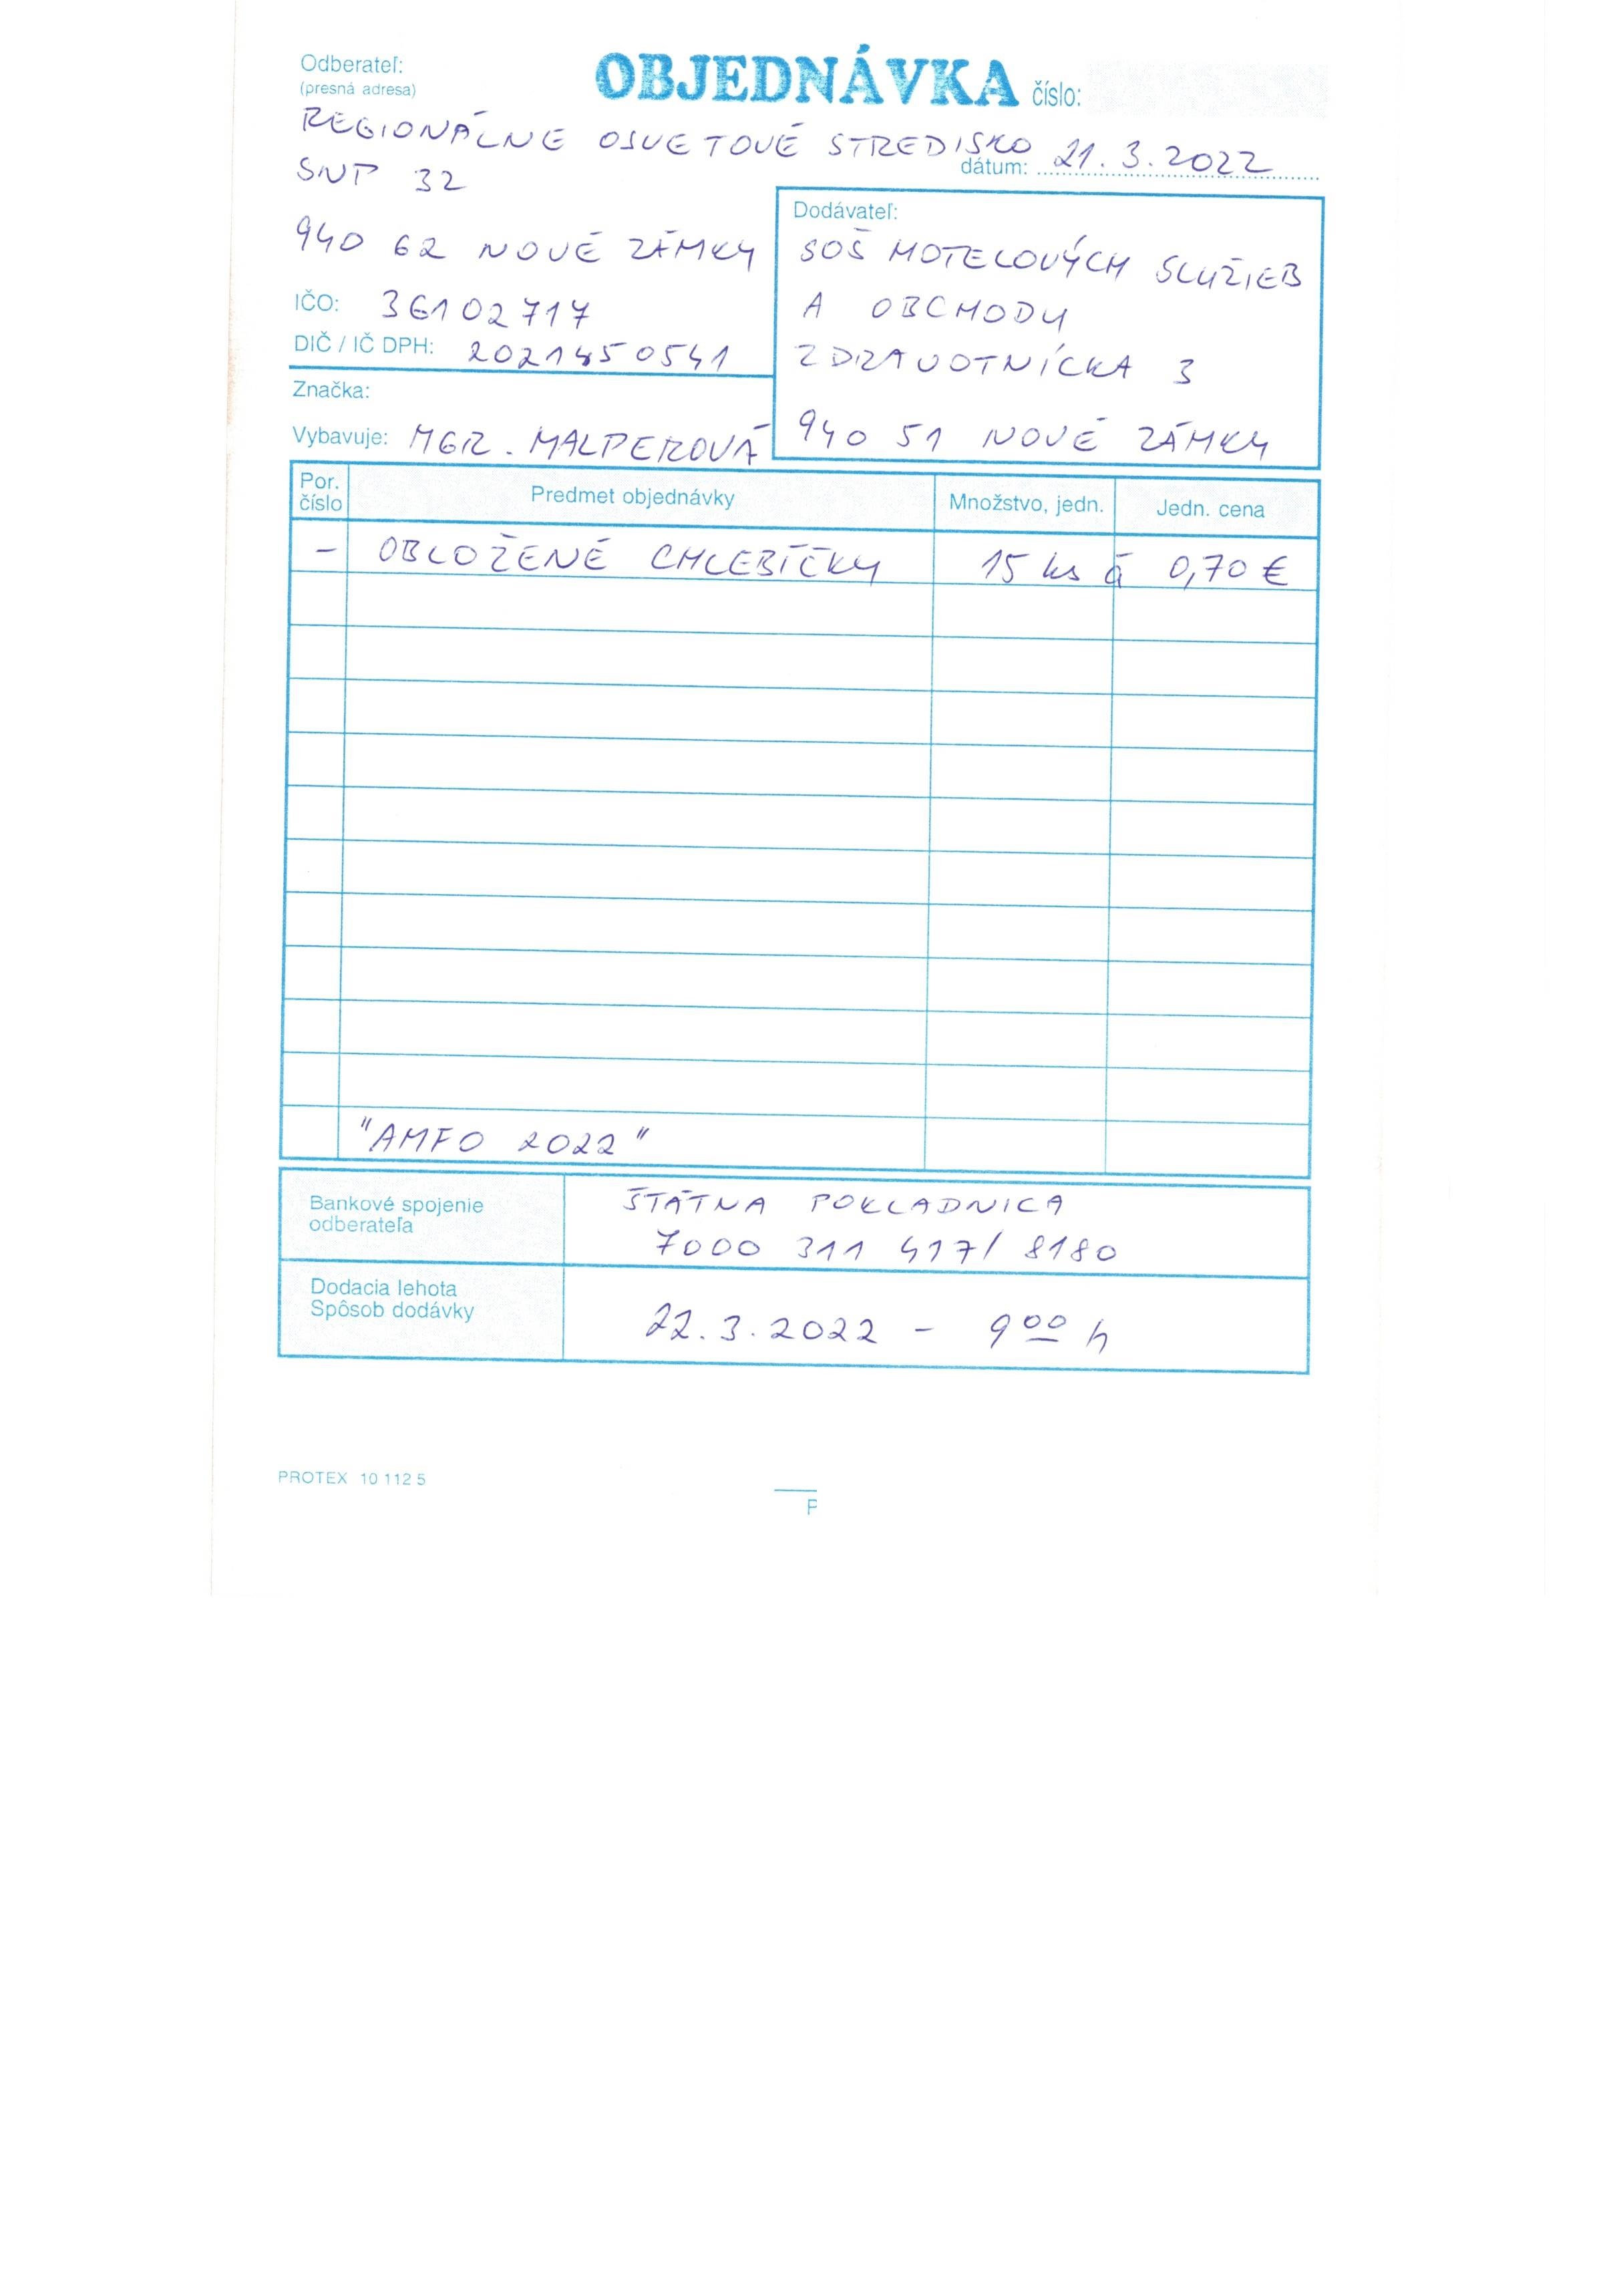 Odberateľ:
(presná adresa)
OBJEDNÁVKA číslo:
REGIONÁLNE OSVETOVÉ STREDISKO
dátum: 21.3.2022
SNP 32
940 62 NOVÉ ZÁMKY
IČO: 36102717
DIČ / IČ DPH: 2021450541
Značka:
Vybavuje: MGR. MALPEROVÁ
Dodávateľ:
SOŠ HOTELOVÝCH SLUŽIEB
A OBCHODU
ZDRAVOTNÍCKA 3
940 51 NOVÉ ZÁMKY
Por. číslo Predmet objednávky Množstvo, jedn. Jedn. cena
– OBLOŽENÉ CHLEBÍČKY 15 ks á 0,70 €
"AMFO 2022"
Bankové spojenie
odberateľa
ŠTÁTNA POKLADNICA
7000 311 417/ 8180
Dodacia lehota
Spôsob dodávky
22.3.2022 – 9 00 h
PROTEX 10 112 5
P